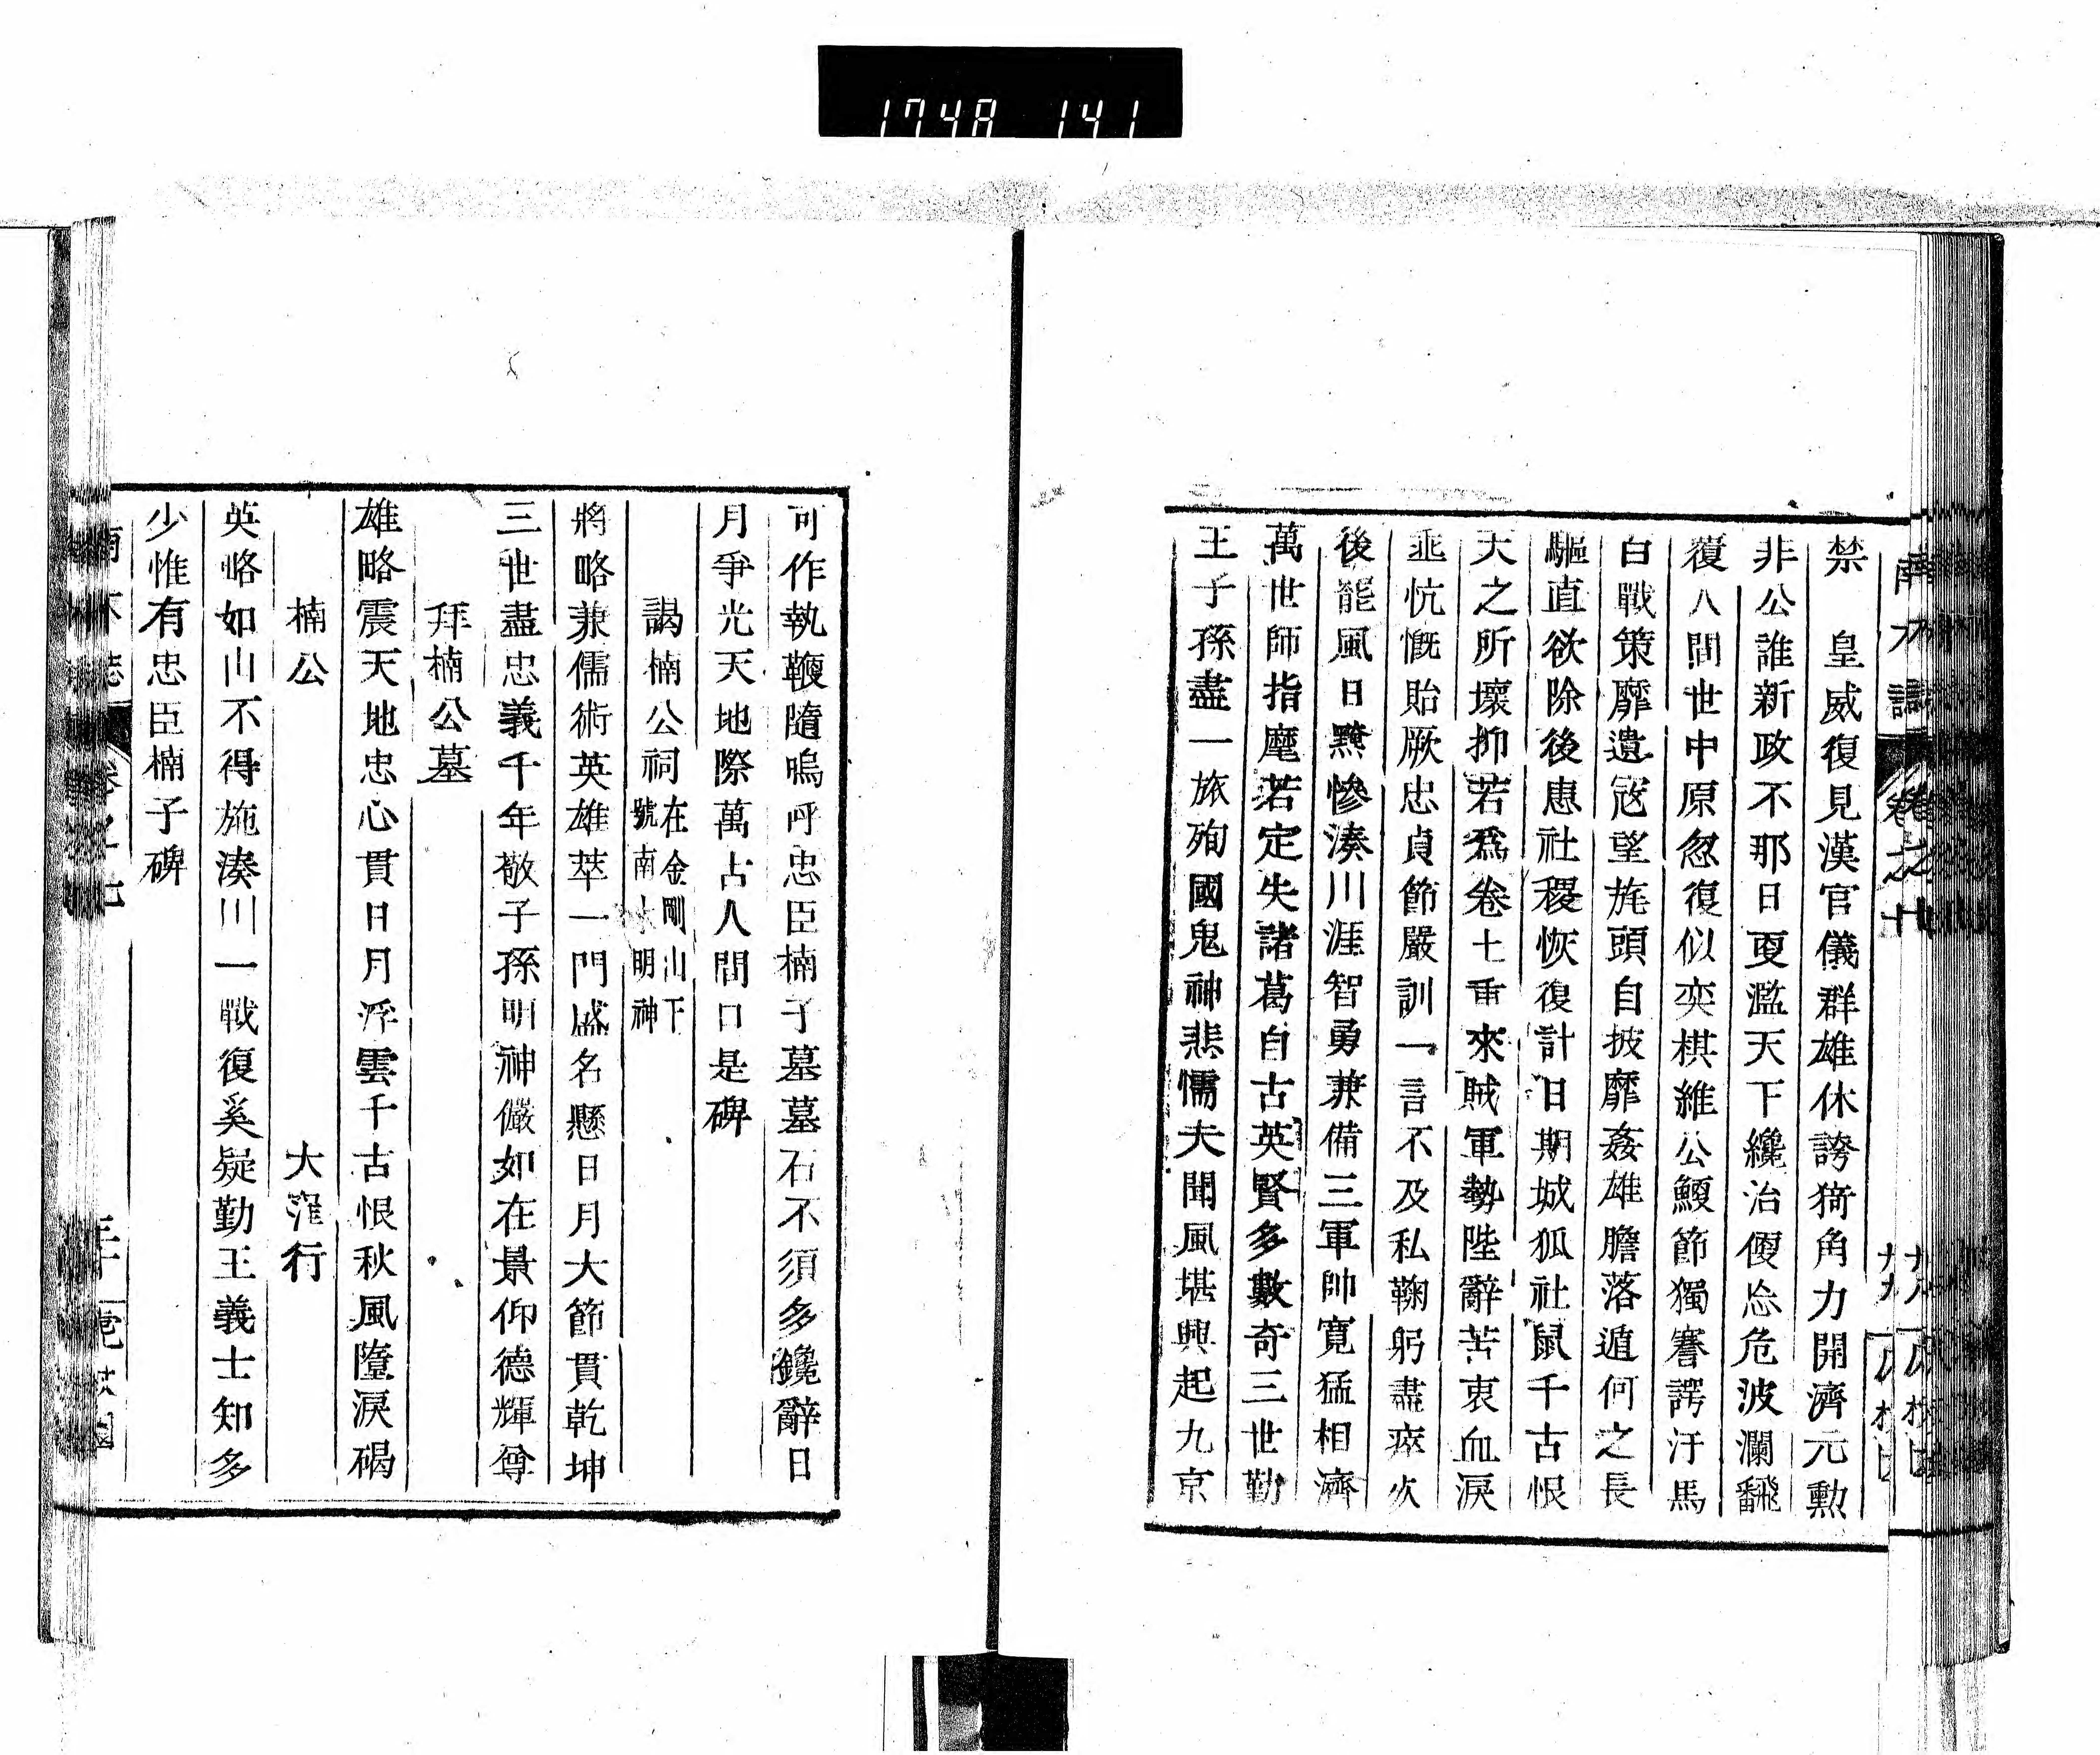 1748 141
禁　皇威復見漢官儀群雄休誇猗角力開濟元勳
非公誰新政不那日夏濫天下纔治便忘危波瀾飜
覆人間世中原忽復似奕棋維公鯁節獨謇諤汗馬
白戰策靡遺寇望旄頭自披靡姦雄膽落遁何之長
驅直欲除後患社稷恢復計日期城狐社鼠千古恨
天之所壞抑若爲卷土重來賊軍勢陛辭苦衷血淚
垂忼慨貽厥忠貞節嚴訓一言不及私鞠躬盡瘁
後能風日黲慘湊川涯智勇兼備三軍帥寬猛相濟
萬世師指麾若定失諸葛自古英賢多數奇三世勤
王子孫盡一旅殉國鬼神悲懦夫聞風堪興起九京
可作執鞭隨嗚呼忠臣楠子墓墓石不須多鑱辭日
月爭光天地際萬古人間口是碑
謁楠公祠在金剛山下號南木明神
將略兼儒術英雄萃一門盛名懸日月大節貫乾坤
三世盡忠義千年敬子孫明神儼如在景仰德輝尊
拜楠公墓
雄略震天地忠心貫日月浮雲千古恨秋風墮淚碣
楠公　大窪行
英略如山不得施湊川一戰復奚疑勤王義士知多
少惟有忠臣楠子碑